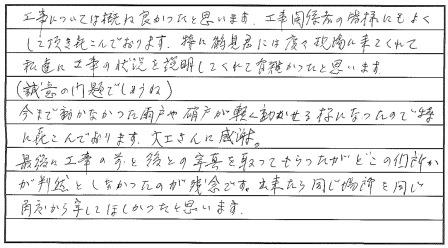 工事については概ね良かったと思います。工事関係者の皆様にもよく
して頂き花こんでおります。特に鶴見君には度々現場に来てくれて
私達に工事の状況を説明してくれて有難かったと思います
(誠意の問題でしょうね)
今まで動かなかった雨戸や網戸が軽く動かせる様になったので特
に花こんでおります。大工さんに感謝。
最後に工事の前と後との写真を取ってもらったがどこの個所か
が判然としなかったのが残念です。出来たら同じ場所を同じ
角度から写してほしかったと思います。